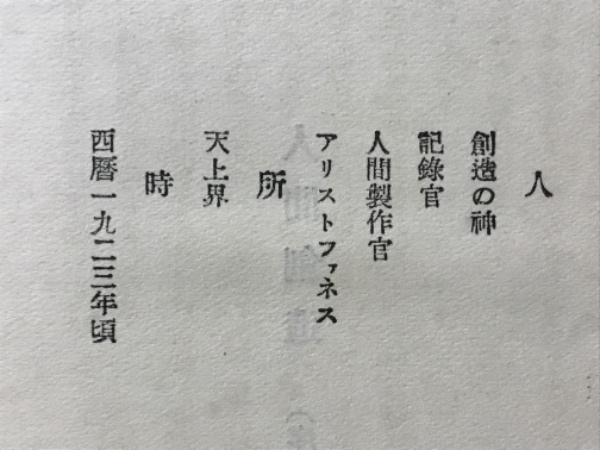 人
創造の神
記錄官
人間製作官
アリストファネス
所
天上界
時
西曆一九二三年頃